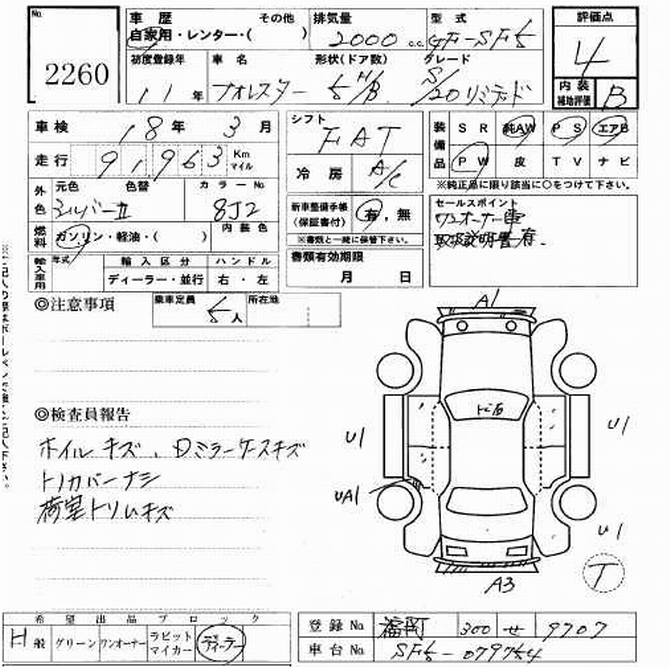 No.
2260
車歴 その他
自家用・レンター・( )
排気量
2000 c.c.
型式
GF-SF5
評価点
4
内装
補助評価
B
初度登録年
11年
車名
フォレスター
形状(ドア数)
5 H/B
グレード
S/20リミテッド
車検 18年 3月
走行 91,963 Km
マイル
シフト
FAT
冷房 A/C
装備品
SR 純AW PS エアB
PW 皮 TV ナビ
※純正品に限り該当に○をつけて下さい。
外色
元色 色替
シルバーII
カラーNo.
8J2
燃料
ガソリン・軽油・( )
内装色
新車整備手帳
(保証書付)
有・無
※書類と一緒に保管下さい。
セールスポイント
ワンオーナー車
取扱説明書有.
輸入車用
年式
輸入区分
ディーラー・並行
ハンドル
右・左
書類有効期限
月 日
◎注意事項
乗車定員
5人
所在地
A1
U1
U1
UA1
U1
A3
T
◎検査員報告
ホイルキズ、Dミラーケースキズ
トノカバーナシ
荷室トリムキズ
希望出品ブロック
H 般
グリーン
ワンオーナー
ラビット
マイカー
ディーラー
登録No. 福岡 300 せ 9707
車台No. SF5-079754